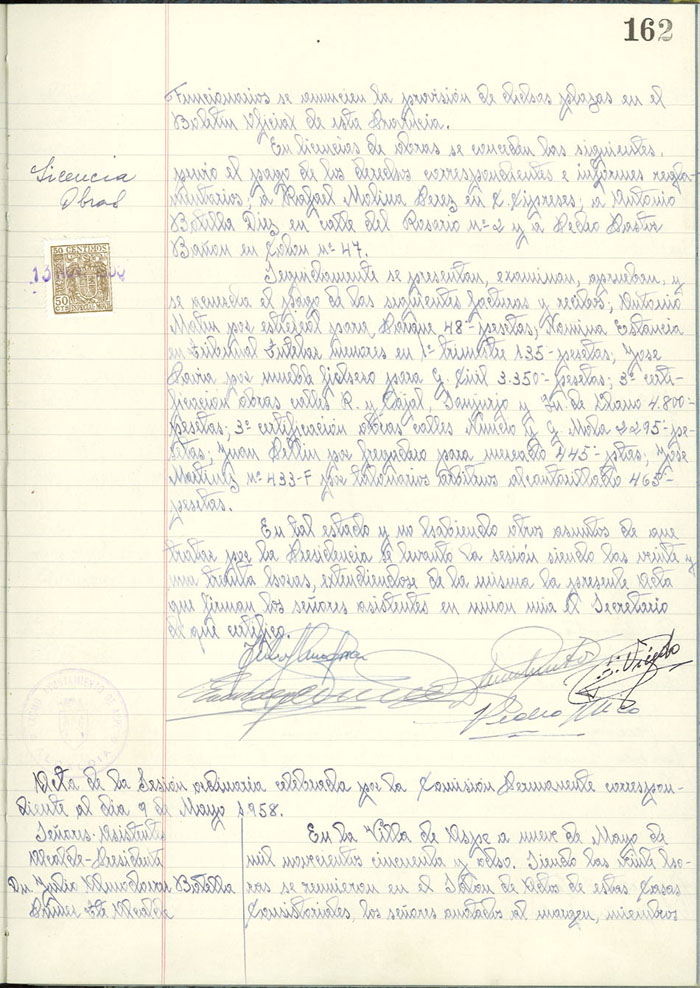 162
Funcionarios se anuncien la provisión de dichas plazas en el
Boletin Oficial de esta Provincia.
Licencia
Obras
En licencias de obras se conceden las siguientes,
previo el pago de los derechos correspondientes e informes regla-
mentarios; a Rafael Molina Perez en C. Cipreses; a Antonio
Botella Diez en calle del Rosario nº 2 y a Pedro Pastor
Bañon en Colon nº 47.
50 CENTIMOS
50
CTS
13
Seguidamente se presentan, examinan, aprueban, y
se acuerda el pago de las siguientes facturas y recibos; Antonio
Matin por estiercol para Parque 48'- pesetas; Nomina Estancia
en Tribunal Tutelar menores en 1º trimestre 135- pesetas; Jose
por mueble fichero para G. Civil 3.350'- pesetas; 3ª certi-
ficacion obras calles R. y Cajal, Sanjurjo y Fn. de Llano 4.800-
pesetas; 3ª certificación obras calles Nuñelo y G Mola 2295- pe-
setas; Juan por fregadero para mercado 445'- ptas; Jose
Martinez nº 433-F por talonarios arbitrios alcantarillado 465-
pesetas.
En tal estado y no habiendo otros asuntos de que
tratar por la Presidencia se levantó la sesión siendo las veinte y
una treinta horas, extendiendose de la misma la presente Acta
que firman los señores asistentes en union mia el Secretario
de que certifico.
Pedro
Acta de la Sesión ordinaria celebrada por la Comisión Permanente correspon-
diente al dia 9 de Mayo 1958.
Señores Asistentes
Alcalde-Presidente
Dn. Julio Almodovar Botella
Primer Tte Alcalde
En la Villa de Aspe a nueve de Mayo de
mil novecientos cincuenta y ocho. Siendo las veinte ho-
ras se reunieron en el Salon de Actos de estas Casas
Consistoriales, los señores anotados al margen, miembros